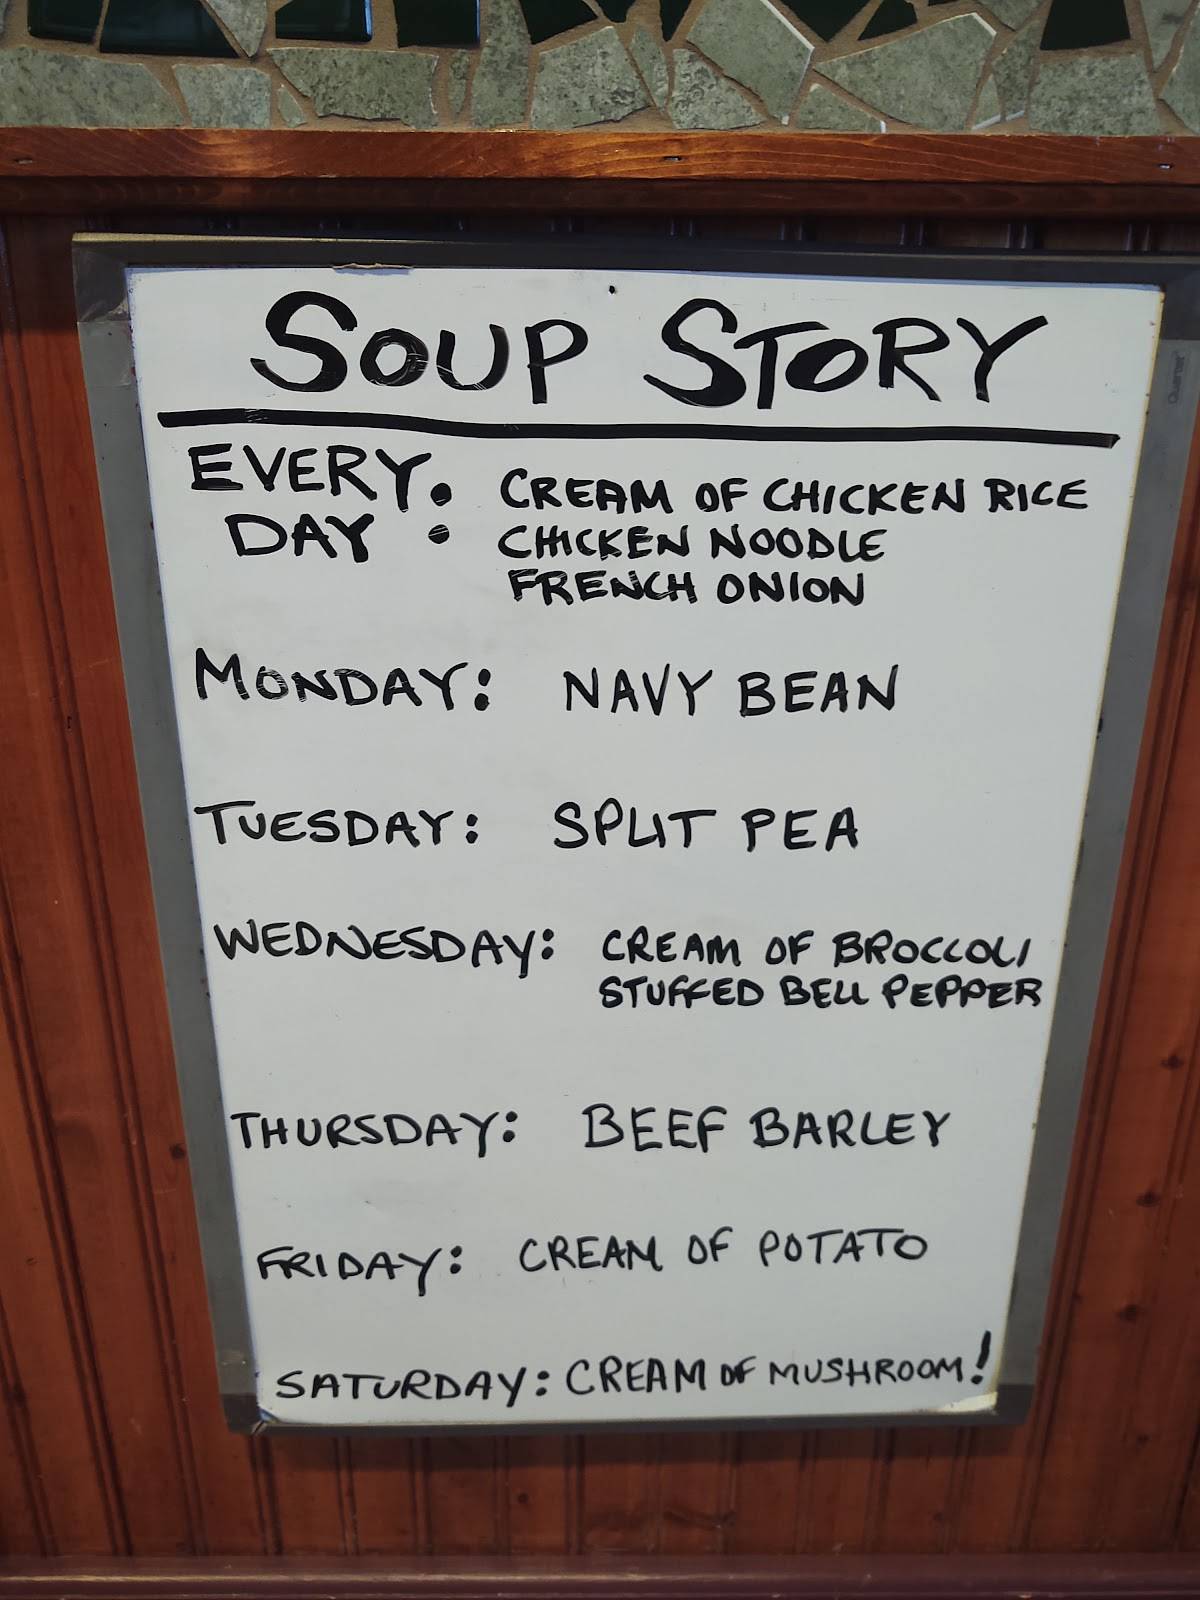 SOUP STORY
EVERY DAY: CREAM OF CHICKEN RICE
CHICKEN NOODLE
FRENCH ONION
MONDAY: NAVY BEAN
TUESDAY: SPLIT PEA
WEDNESDAY: CREAM OF BROCCOLI
STUFFED BELL PEPPER
THURSDAY: BEEF BARLEY
FRIDAY: CREAM OF POTATO
SATURDAY: CREAM OF MUSHROOM!
Quartet